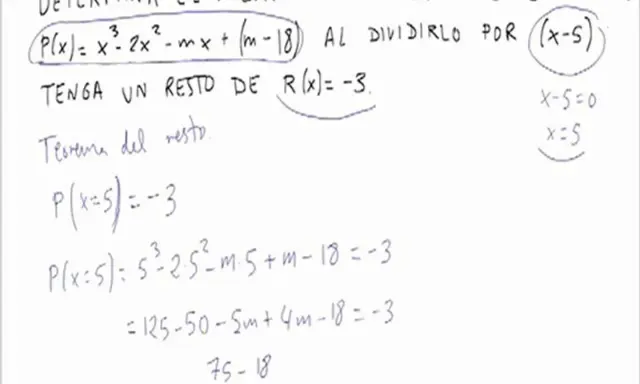 P(x) = x³ - 2x² - mx + (m - 18) AL DIVIDIRLO POR (x-5)
TENGA UN RESTO DE R(x) = -3.
x-5=0
x=5
Teorema del resto.
P(x=5) = -3
P(x=5) = 5³ - 2·5² - m·5 + m - 18 = -3
= 125 - 50 - 5m + 4m - 18 = -3
75 - 18